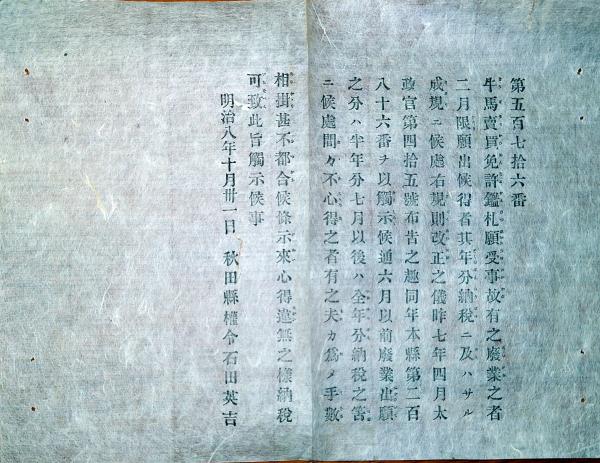 第五百七拾六番
牛馬賣買免許鑑札願受事故有之廢業之者
二月限願出候得者其年分納税ニ及ハサル
成規ニ候處右規則改正之儀昨七年四月太
政官第四拾五號布告之趣同年本縣第二百
八十六番ヲ以觸示候通六月以前廢業出願
之分ハ半年分七月以後ハ全年分納税之筈
ニ候處間々不心得之者有之夫カ爲メ手數
相掛甚不都合候條示來心得違無之樣納税
可致此旨觸示候事
明治八年十月卅一日 秋田縣權令石田英吉